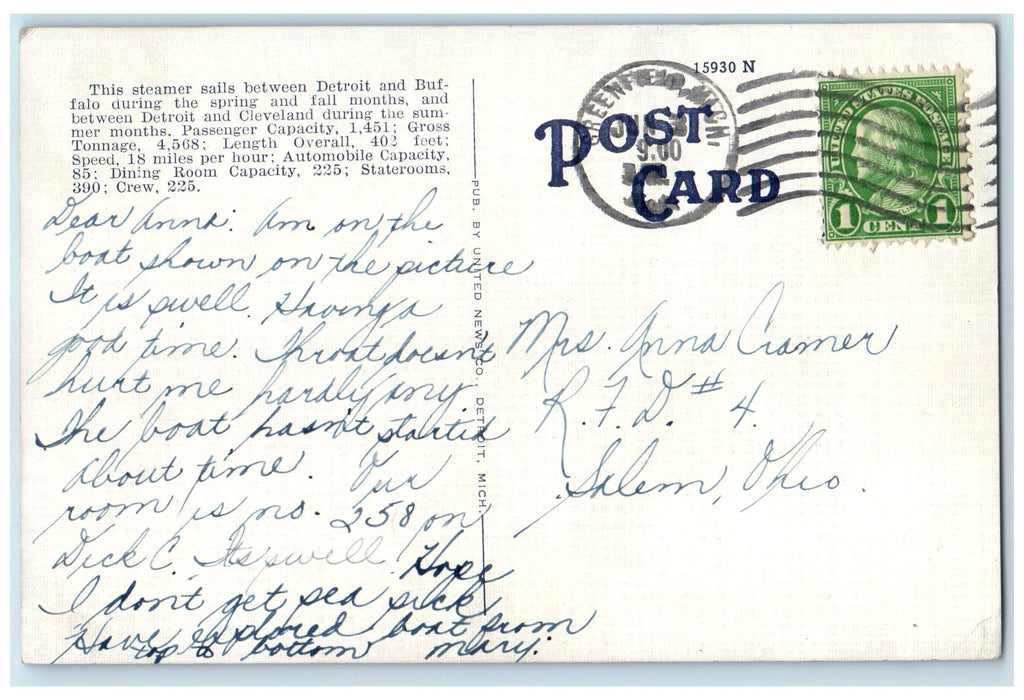 This steamer sails between Detroit and Buf-
falo during the spring and fall months, and
between Detroit and Cleveland during the sum-
mer months. Passenger Capacity, 1,451; Gross
Tonnage, 4,568; Length Overall, 402 feet;
Speed, 18 miles per hour; Automobile Capacity,
85; Dining Room Capacity, 225; Staterooms,
390; Crew, 225.
Dear Anna: Am on the
boat shown on the picture
It is swell. Having a
good time. Throat doesn't
hurt me hardly any
The boat hasn't started
about time. Our
room is no. 258 on
Deck C. Its swell. Hope
I dont get sea sick
Have explored boat from
top to bottom Mary.
PUB. BY UNITED NEWS CO., DETROIT, MICH.
15930 N
POST
CARD
GREENFIELD, MICH.
9:00
UNITED STATES POSTAGE
1 CENT 1
Mrs. Anna Cramer
R. F. D. # 4
Salem, Ohio.